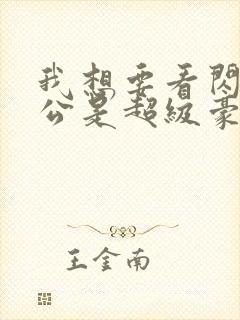 我想要看閃
公是超级豪
王金南